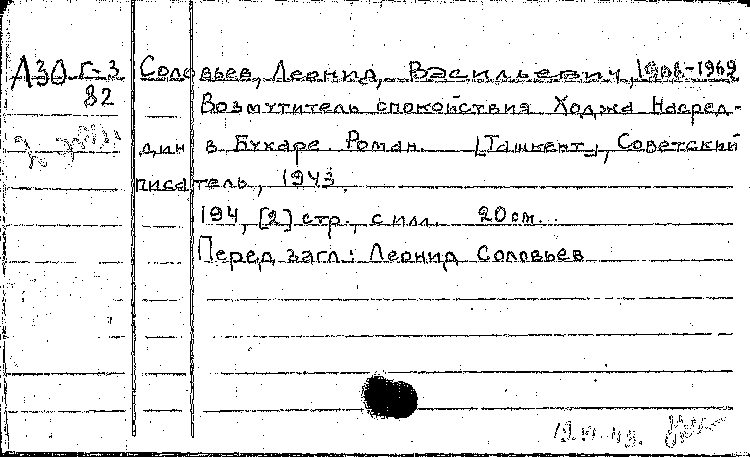 Л30 Г-3 Соловьев, Леонид, Васильевич, 1906-1962
82
Возмутитель спокойствия Ходжа Насред-
дин в Бухаре. Роман. [Ташкент], Советский
писатель, 1943.
194, [2] стр., с илл. 20 см.
Перед загл.: Леонид Соловьев